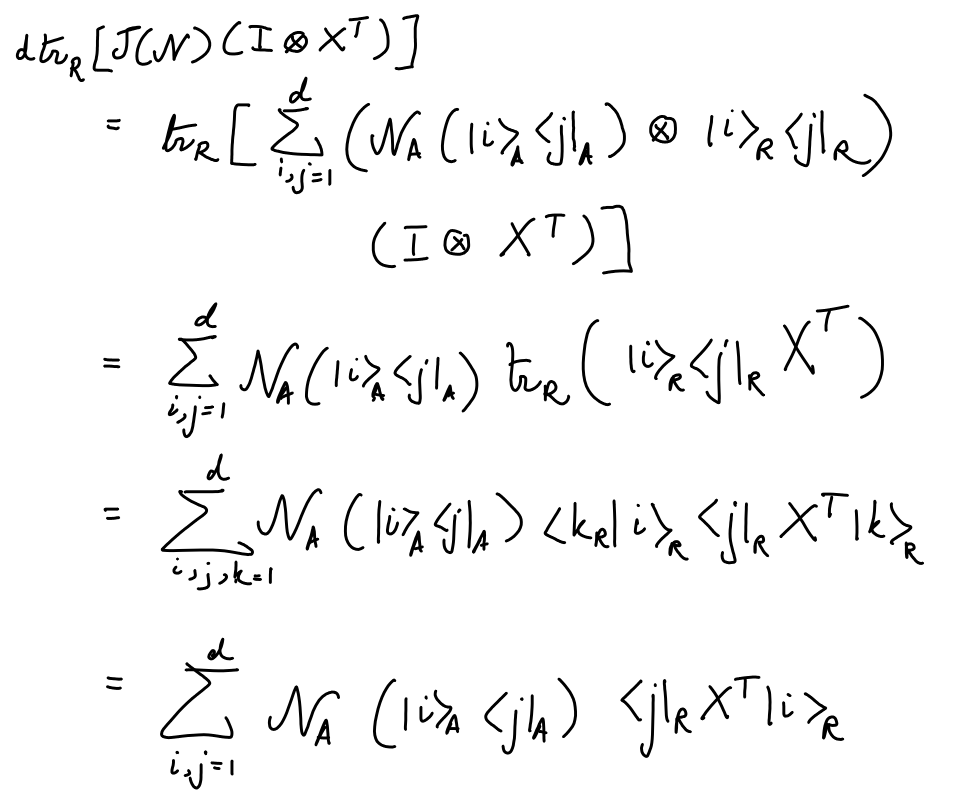 d tr_R [J(𝒩) (I ⊗ X^T)]
= tr_R [ ∑_{i,j=1}^{d} (𝒩_A (|i>_A <j|_A) ⊗ |i>_R <j|_R)
(I ⊗ X^T)]
= ∑_{i,j=1}^{d} 𝒩_A (|i>_A <j|_A) tr_R ( |i>_R <j|_R X^T )
= ∑_{i,j,k=1}^{d} 𝒩_A (|i>_A <j|_A) <k_R| i>_R <j|_R X^T |k>_R
= ∑_{i,j=1}^{d} 𝒩_A (|i>_A <j|_A) <j|_R X^T |i>_R